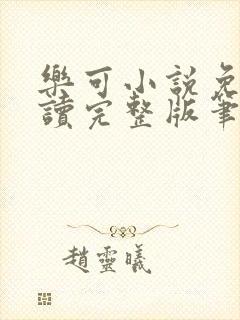 樂可小說免
讀完整版筆
趙靈曦